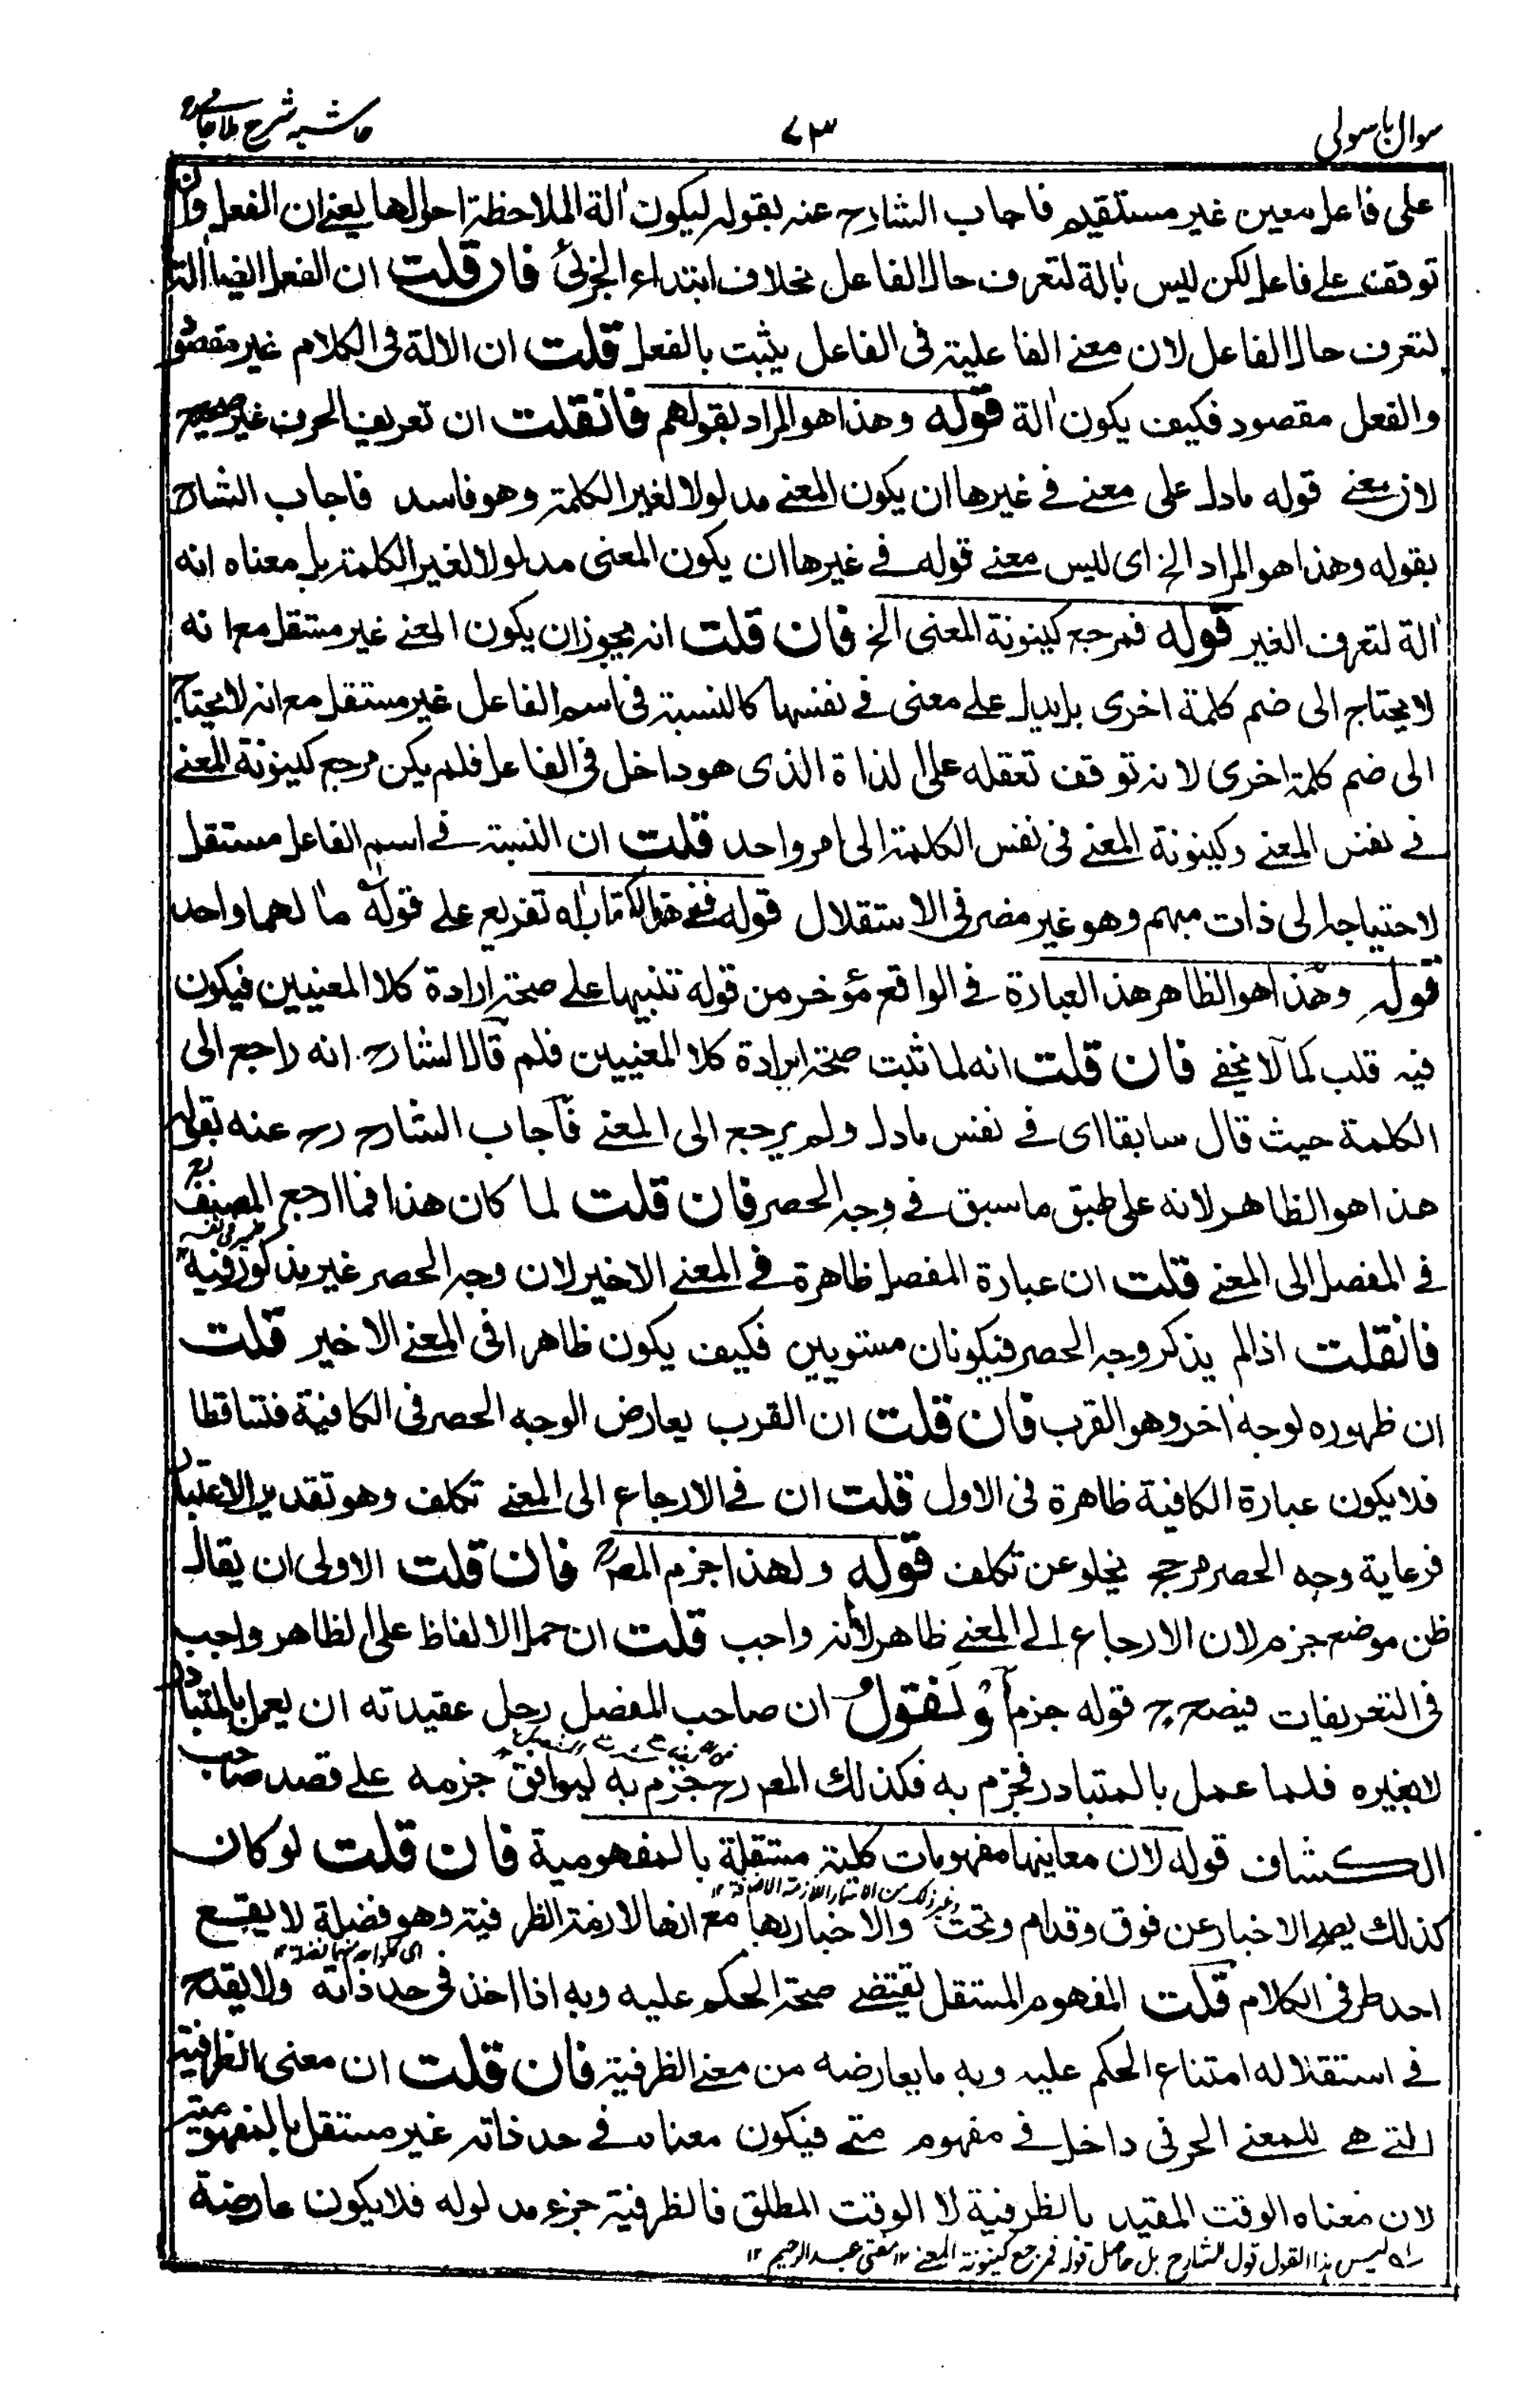 سوال باسولی ٧٣ حاشیہ شرح ملا جامی
على فاعل معين غير مستقيم فاجاب الشارح عنہ بقولہ ليكون اٰلة الملاحظة احوالها يعنے ان الفعل وان
توقف علے فاعل لكن ليس باٰلة لتعرف حال الفاعل بخلاف ابتداء الجزئى فان قلت ان الفعل ايضا اٰلة
لتعرف حال الفاعل لان معنے الفاعلية فى الفاعل يثبت بالفعل قلت ان الالة فى الكلام غير مقصود
والفعل مقصود فكيف يكون اٰلة قوله وهذا هو المراد بقولهم فانقلت ان تعريف الحرف غير صحيح
لان معنے قوله مادل على معنے فے غيرها ان يكون المعنے مدلولا لغير الكلمة وهو فاسد فاجاب الشارح
بقوله وهذا هو المراد الخ اى ليس معنے قوله فے غيرها ان يكون المعنى مدلولا لغير الكلمة بل معناه انه
اٰلة لتعرف الغير قوله فمرجع كينونة المعنى الخ فان قلت انہ يجوز ان يكون المعنے غير مستقل مع انه
لا يحتاج الى ضم كلمة اخرى بل يدل علے معنى فے نفسها كالنسبة فى اسم الفاعل غير مستقل مع انہ لا يحتاج
الى ضم كلمة اخرى لانہ توقف تعقله على الذاة الذى هو داخل فى الفاعل فلم يكن مرجع كينونة المعنے
فے نفس المعنے وكينونة المعنے فى نفس الكلمة الى امر واحد قلت ان النسبة فے اسم الفاعل مستقل
لاحتياجہ الى ذات مبهم وهو غير مضر فى الاستقلال قوله ففے هذا الكتاب اه تفريع علے قوله مآلهما واحد
قوله وهذا هو الظاهر هذ العبارة فے الواقع مؤخر من قوله تنبيها علے صحة ارادة كلا المعنيين فيكون
فيہ قلب كما لا يخفے فان قلت انه لما ثبت صحة ارادة كلا المعنيين فلم قال الشارح انه راجع الى
الكلمة حيث قال سابقا اى فے نفس مادل ولم يرجع الى المعنے فاجاب الشارح رح عنه بقوله
هذا هو الظاهر لانه على طبق ماسبق فے وجہ الحصر فان قلت لما كان هذا فما ارجع المصنف رح
فے المفصل الى المعنے قلت ان عبارة المفصل ظاهرة فے المعنے الاخير لان وجہ الحصر غير مذكور فيه
فانقلت اذا لم يذكر وجہ الحصر فيكونان مستويين فكيف يكون ظاهرا فى المعنے الاخير قلت
ان ظهوره لوجه اٰخر وهو القرب فان قلت ان القرب يعارض الوجه الحصر فى الكافية فتساقطا
فلا يكون عبارة الكافية ظاهرة فى الاول قلت ان فے الارجاع الى المعنے تكلف وهو تقدير الاعتبار
فرعاية وجه الحصر مرجح يخلو عن تكلف قوله ولهذا جزم المصرح فان قلت الاولى ان يقال
ظن موضع جزم لان الارجاع الے المعنے ظاهر لانہ واجب قلت ان حمل الالفاظ على الظاهر واجب
فى التعريفات فيصح ح قوله جزم او لنقول ان صاحب المفصل رجل عقيدته ان يعمل بالمتبادر
لا بغيره فلما عمل بالمتبادر فجزم به فكذلك المصرح جزم به ليوافق جزمه علے قصد صاحب
الكشاف قوله لان معانيها مفهومات كلية مستقلة بالمفهومية فان قلت لو كان
وغير ذلك من الاسماء اللازمة الاضافة ١٢
كذلك يصح الاخبار عن فوق وقدام وتحت والاخبار بها مع انها لازمة الظرفية وهو فضيلة لا يقع
احد طرفى الكلام قلت المفهوم المستقل يقتضے صحة الحكم عليه وبه اذا اخذ فى حد ذاته ولا يقدح
فے استقلاله امتناع الحكم عليہ وبه ما يعارضه من معنے الظرفية فان قلت ان معنى الظرفية
التے هے للمعنے الحرفى داخل فے مفهوم متے فيكون معناه فے حد ذاتہ غير مستقل بالمفهومية
لان معناه الوقت المقيد بالظرفية لا الوقت المطلق فالظرفية جزء مدلوله فلا يكون عارضة
اہ ليس هذا القول قول الشارح بل حاصل قوله فمرجع كينونة المعنے ١٢ مفتى عبد الرحيم ١٢